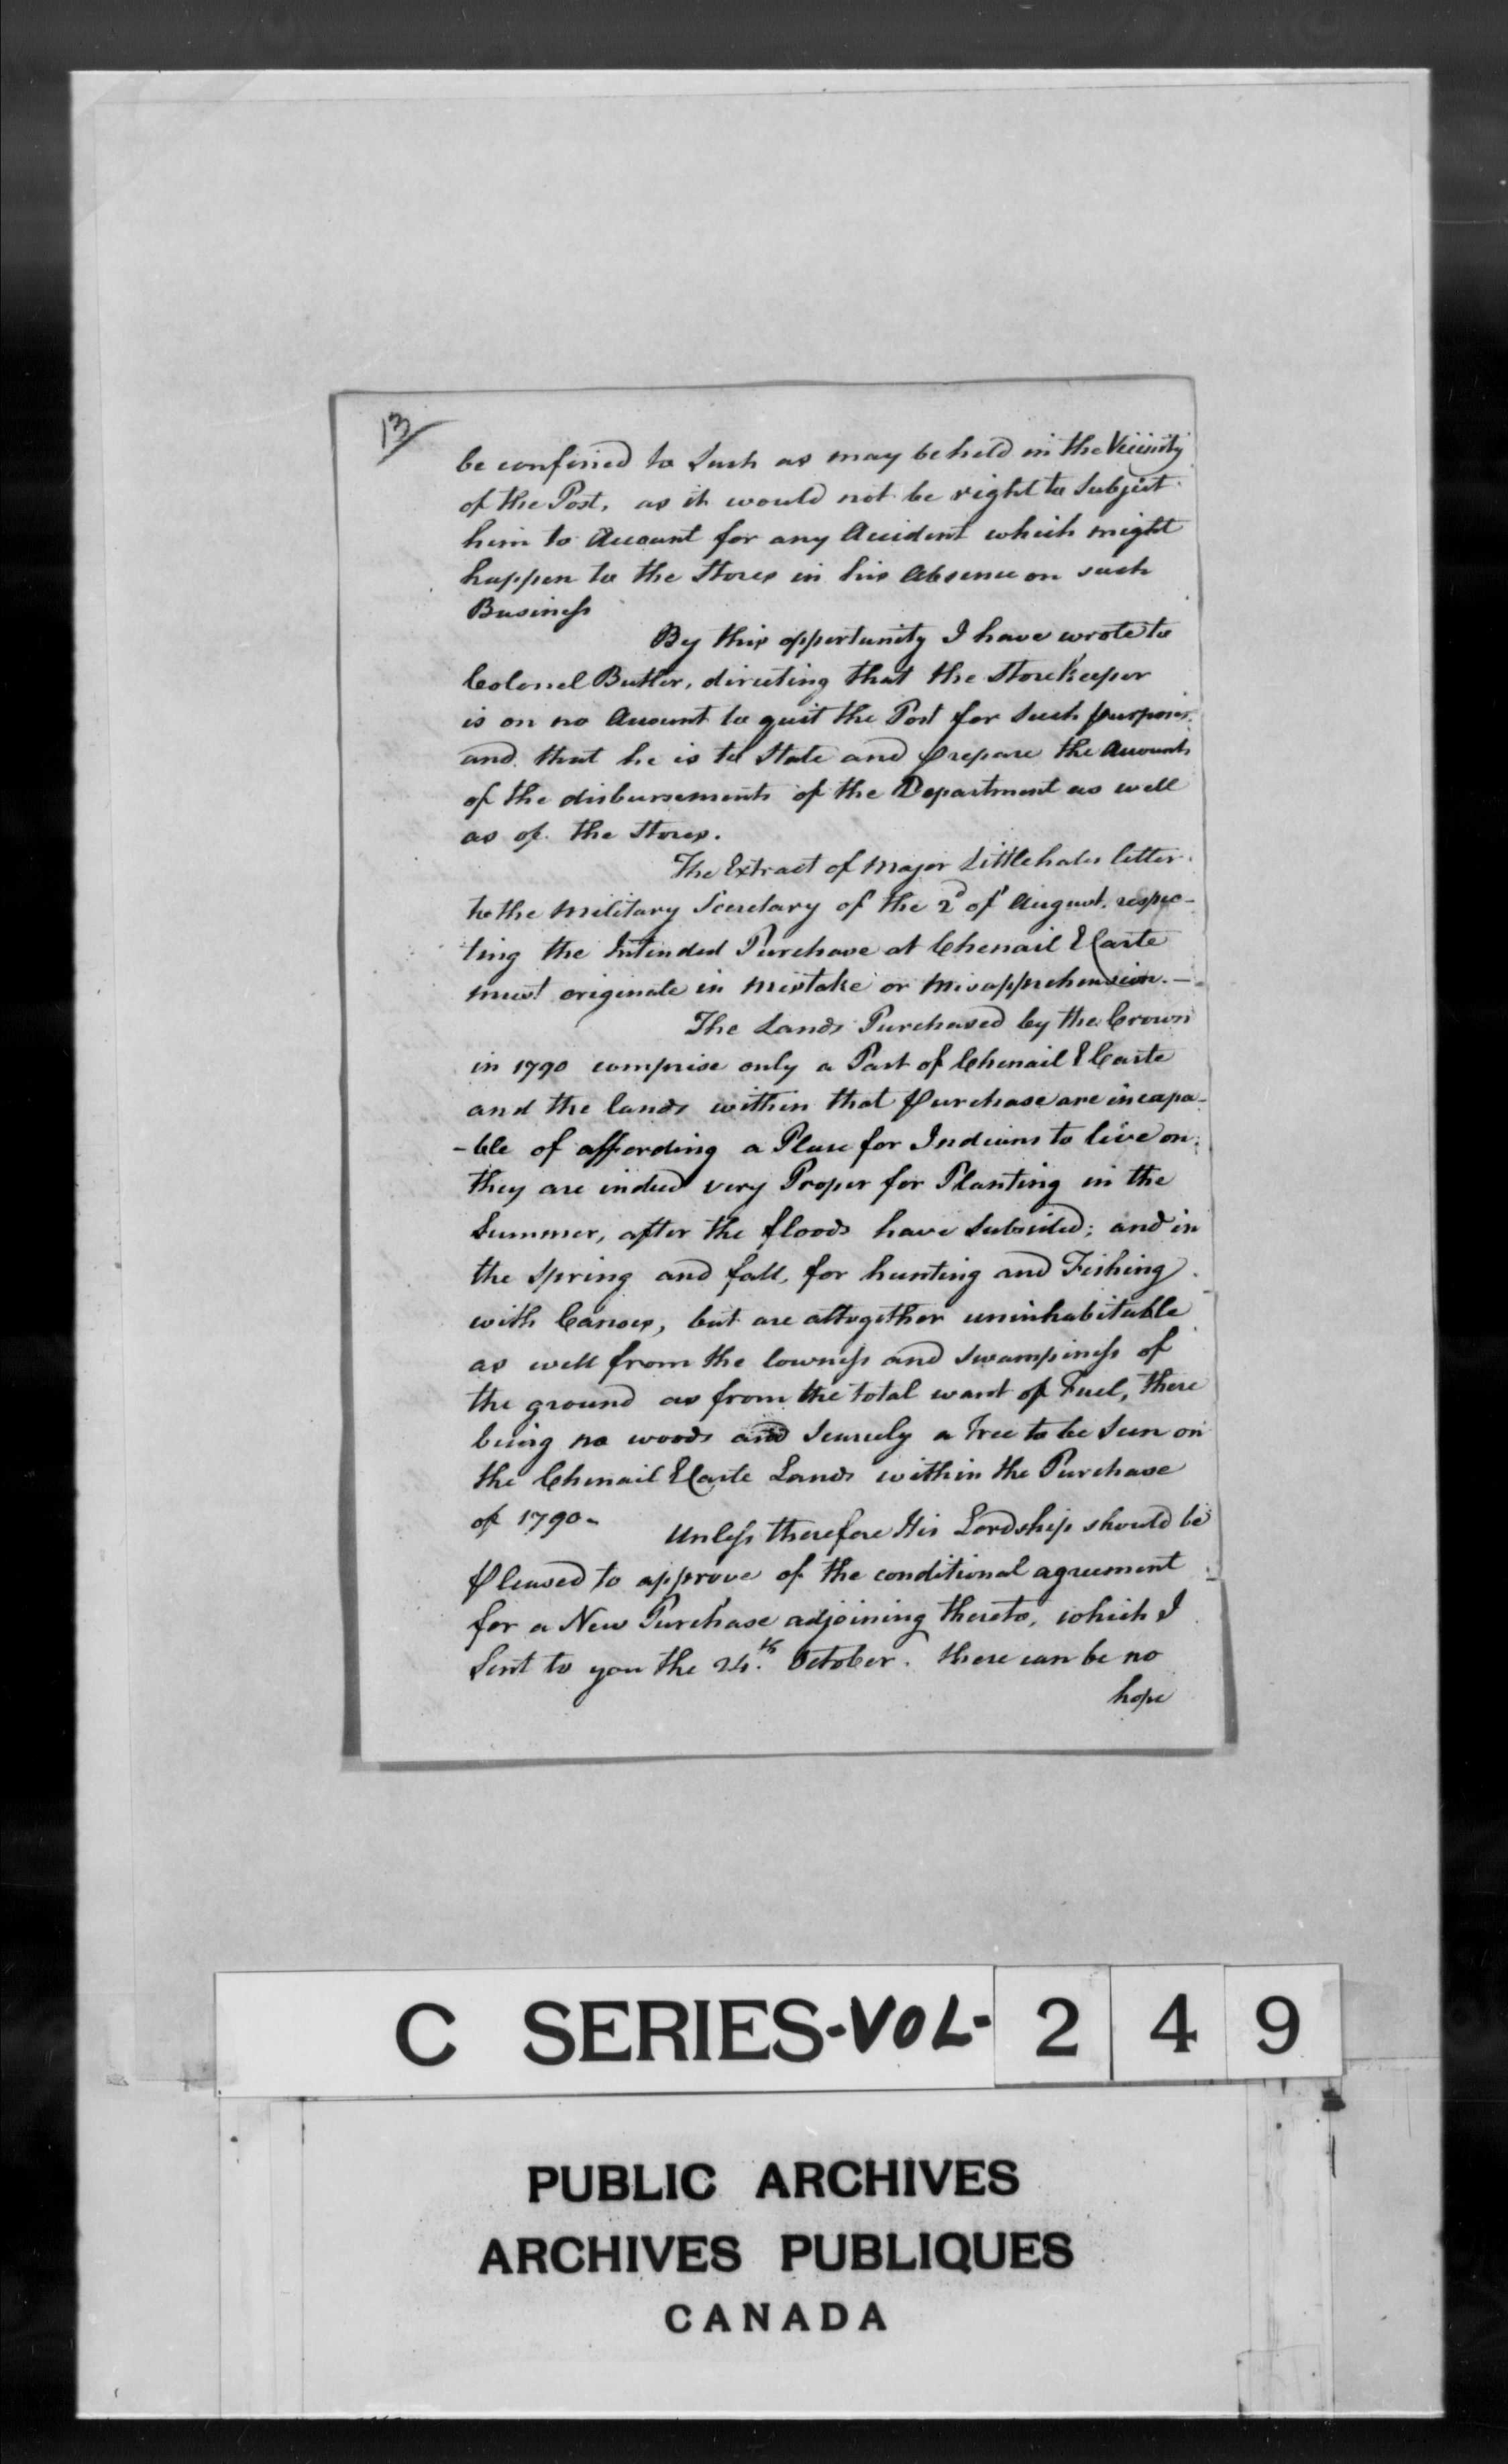 13/
be confined to such as may be held in the Vicinity
of the Post, as it would not be right to subject
him to Account for any Accident which might
happen to the Stores in his Absence on such
Business
By this opportunity I have wrote to
Colonel Butler, directing that the Storekeeper
is on no Account to quit the Post for such purposes,
and that he is to State and prepare the Accounts
of the disbursements of the Department as well
as of the Stores.
The Extract of Major Littlehales letter
to the Military Secretary of the 2d of August, respec-
ting the Intended Purchase at Chenail Ecarte
must originate in Mistake or Misapprehension.—
The Lands Purchased by the Crown
in 1790 comprise only a Part of Chenail Ecarte
and the lands within that Purchase are incapa-
-ble of affording a Place for Indians to live on;
they are indeed very Proper for Planting in the
Summer, after the floods have subsided; and in
the Spring and fall, for hunting and Fishing
with Canoes, but are altogether uninhabitable
as well from the lowness and swampiness of
the ground as from the total want of Fuel, there
being no woods and scarcely a Tree to be seen on
the Chenail Ecarte Lands within the Purchase
of 1790-
Unless therefore His Lordship should be
pleased to approve of the conditional agreement
for a New Purchase adjoining thereto, which I
sent to you the 24.th October. there can be no
hope
C SERIES-VOL- 2 4 9
PUBLIC ARCHIVES
ARCHIVES PUBLIQUES
CANADA